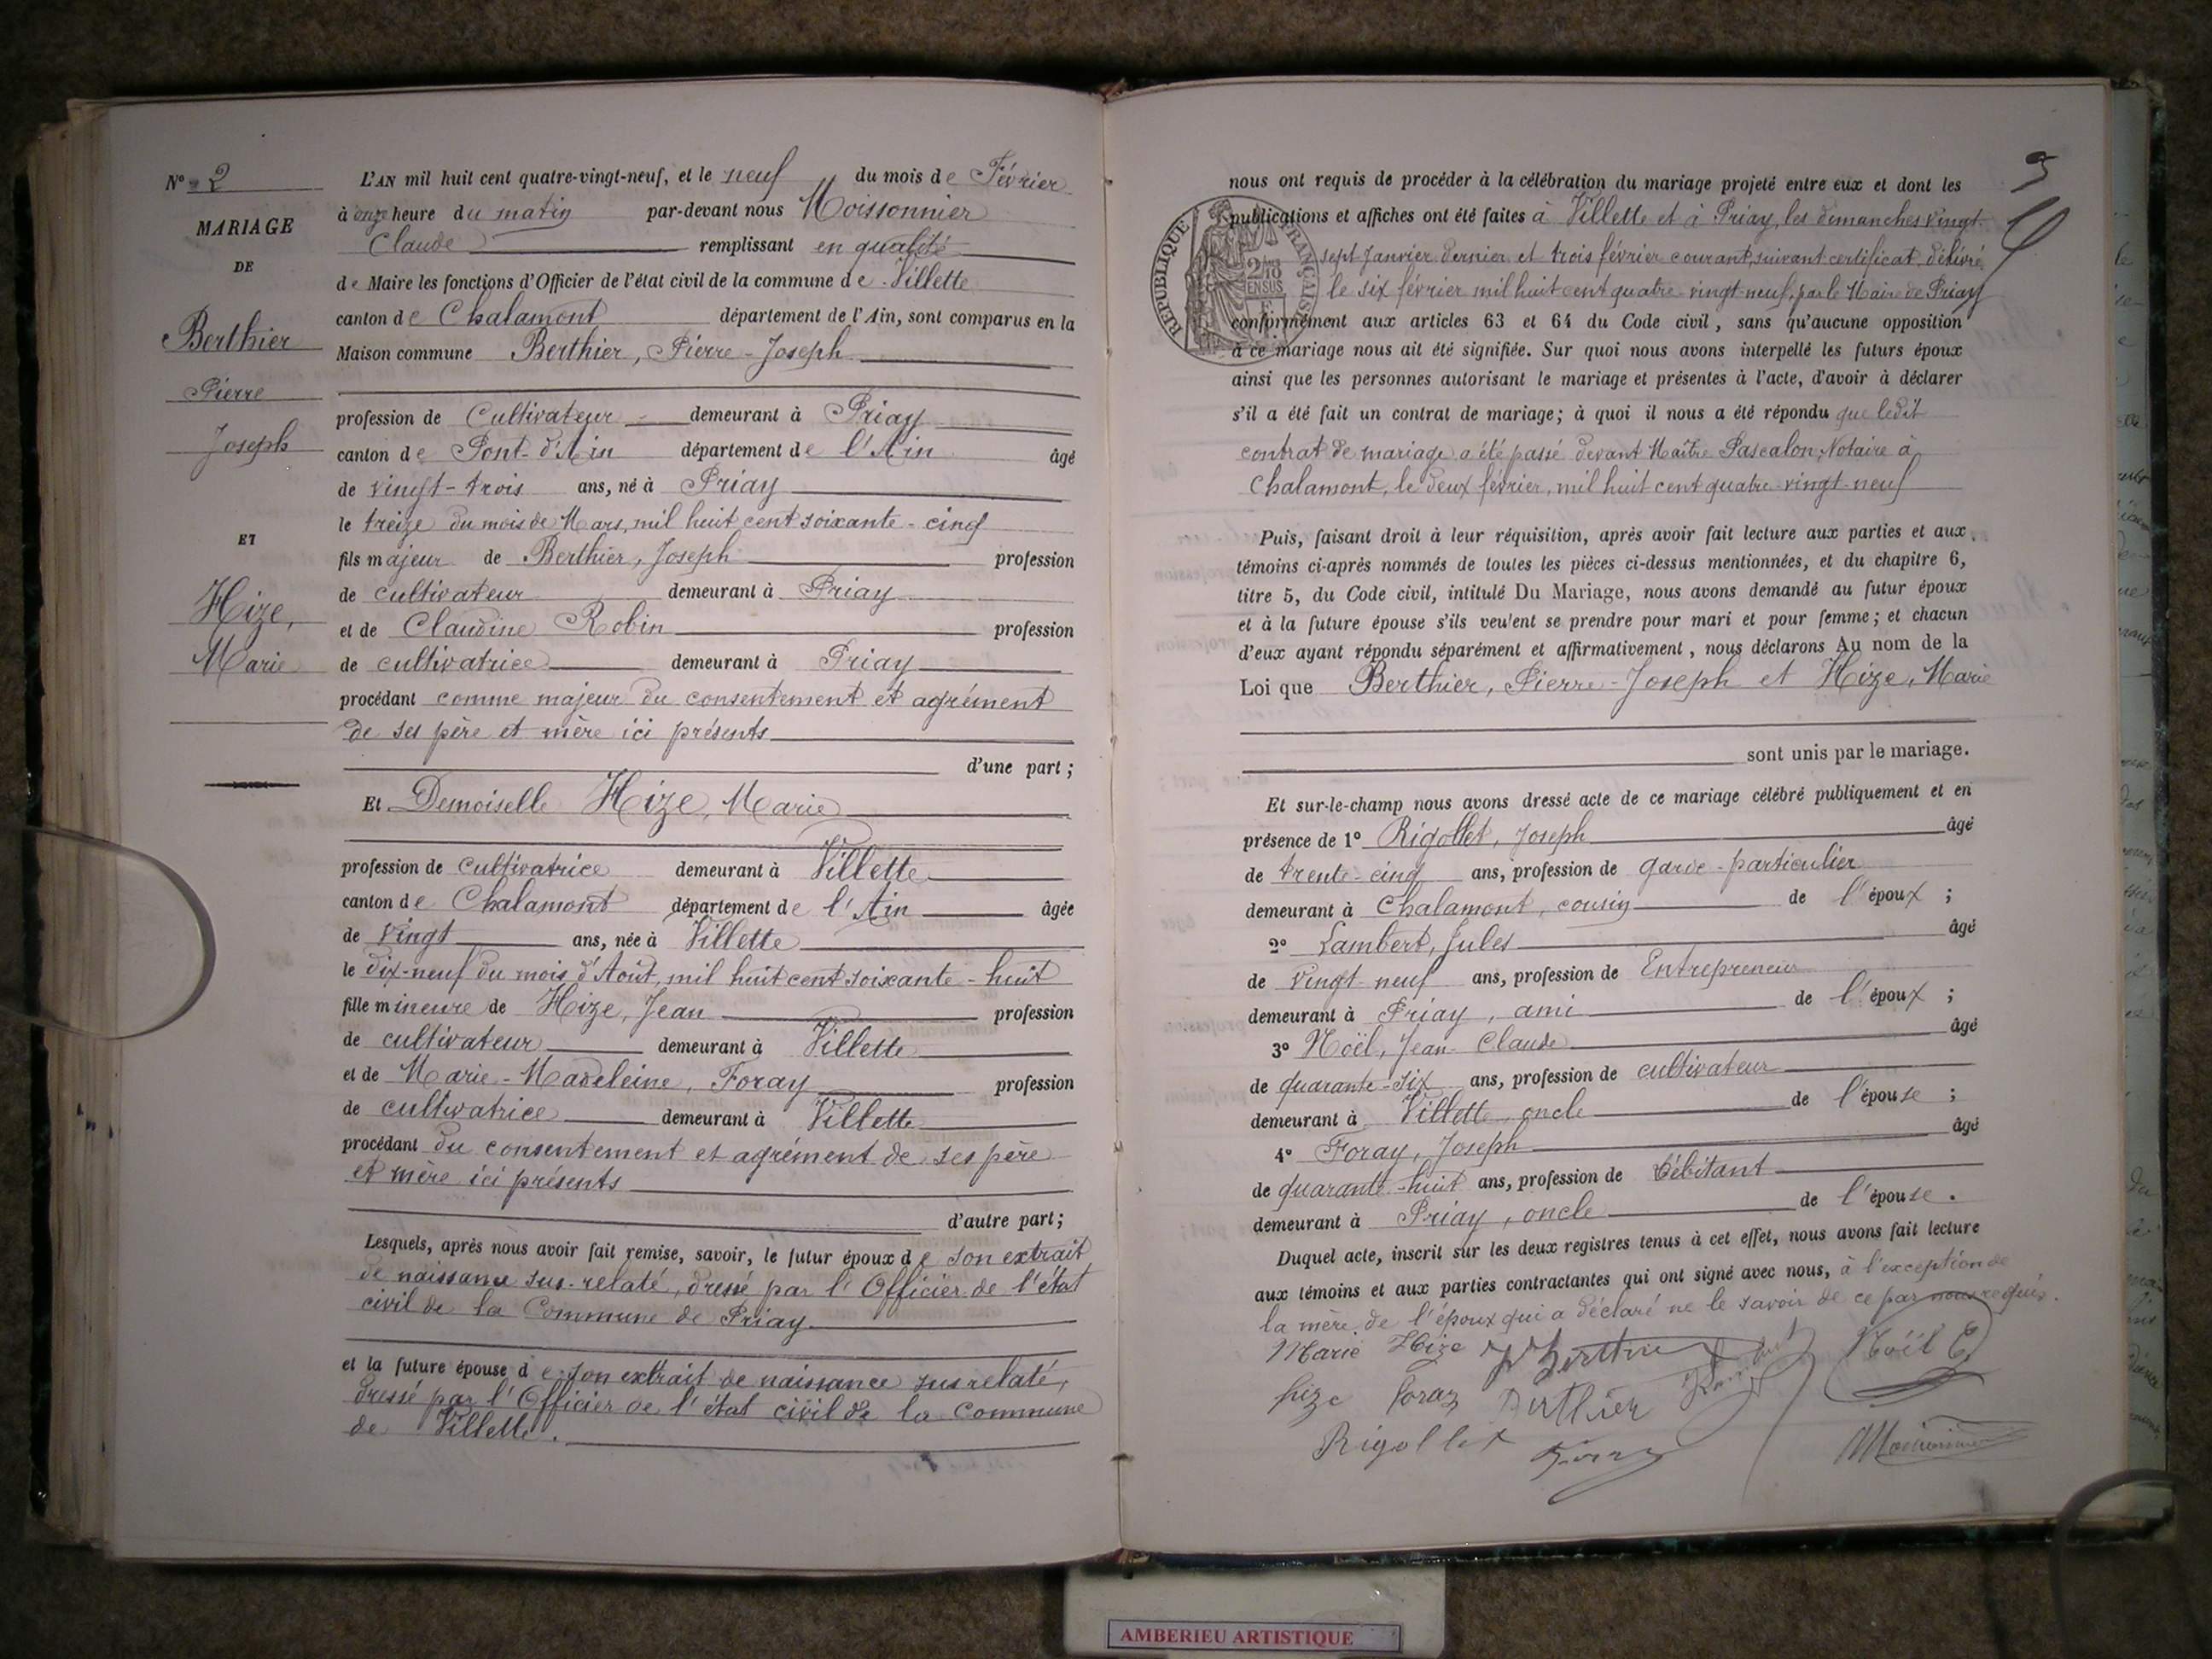 N° 2
MARIAGE
DE
Berthier
Pierre
Joseph
ET
Hize,
Marie
L'AN mil huit cent quatre-vingt-neuf, et le neuf du mois de Février
à onze heure du matin par-devant nous Moissonnier
Claude remplissant en qualité
de Maire les fonctions d'Officier de l'état civil de la commune de Villette
canton de Chalamont département de l'Ain, sont comparus en la
Maison commune Berthier, Pierre-Joseph
profession de Cultivateur demeurant à Priay
canton de Pont-d'Ain département de l'Ain âgé
de vingt-trois ans, né à Priay
le treize du mois de Mars, mil huit cent soixante-cinq
fils majeur de Berthier, Joseph profession
de cultivateur demeurant à Priay
et de Claudine Robin profession
de cultivatrice demeurant à Priay
procédant comme majeur du consentement et agrément
de ses père et mère ici présents
d'une part ;
Et Demoiselle Hize, Marie
profession de cultivatrice demeurant à Villette
canton de Chalamont département de l'Ain âgée
de vingt ans, née à Villette
le dix-neuf du mois d'Août, mil huit cent soixante-huit
fille mineure de Hize, Jean profession
de cultivateur demeurant à Villette
et de Marie-Madeleine, Foray profession
de cultivatrice demeurant à Villette
procédant du consentement et agrément de ses père
et mère ici présents
d'autre part ;
Lesquels, après nous avoir fait remise, savoir, le futur époux de son extrait
de naissance sus-relaté, dressé par l'Officier de l'état
civil de la Commune de Priay.
et la future épouse de son extrait de naissance sus relaté,
dressé par l'Officier de l'état civil de la Commune
de Villette.
nous ont requis de procéder à la célébration du mariage projeté entre eux et dont les
publications et affiches ont été faites à Villette et à Priay, les dimanches vingt-
sept Janvier dernier et trois février courant, suivant certificat délivré
le six février mil huit cent quatre-vingt-neuf, par le Maire de Priay
conformément aux articles 63 et 64 du Code civil, sans qu'aucune opposition
à ce mariage nous ait été signifiée. Sur quoi nous avons interpellé les futurs époux
ainsi que les personnes autorisant le mariage et présentes à l'acte, d'avoir à déclarer
s'il a été fait un contrat de mariage ; à quoi il nous a été répondu que ledit
contrat de mariage a été passé devant Maître Pascalon, Notaire à
Chalamont, le deux février, mil huit cent quatre-vingt-neuf
Puis, faisant droit à leur réquisition, après avoir fait lecture aux parties et aux
témoins ci-après nommés de toutes les pièces ci-dessus mentionnées, et du chapitre 6,
titre 5, du Code civil, intitulé Du Mariage, nous avons demandé au futur époux
et à la future épouse s'ils veulent se prendre pour mari et pour femme ; et chacun
d'eux ayant répondu séparément et affirmativement, nous déclarons Au nom de la
Loi que Berthier, Pierre-Joseph et Hize, Marie
sont unis par le mariage.
Et sur-le-champ nous avons dressé acte de ce mariage célébré publiquement et en
présence de 1° Rigollet, Joseph âgé
de trente-cinq ans, profession de garde-particulier
demeurant à Chalamont, cousin de l'époux ;
2° Lambert, Jules âgé
de vingt-neuf ans, profession de Entrepreneur
demeurant à Priay, ami de l'époux ;
3° Noël, Jean-Claude âgé
de quarante-six ans, profession de cultivateur
demeurant à Villette, oncle de l'épouse ;
4° Foray, Joseph âgé
de quarante-huit ans, profession de débitant
demeurant à Priay, oncle de l'épouse.
Duquel acte, inscrit sur les deux registres tenus à cet effet, nous avons fait lecture
aux témoins et aux parties contractantes qui ont signé avec nous, à l'exception de
la mère de l'époux qui a déclaré ne le savoir de ce par nous requis.
Marie Hize Berthier Noël
hize foray Berthier
Rigollet Moissonnier
RÉPUBLIQUE FRANÇAISE
AMBERIEU ARTISTIQUE